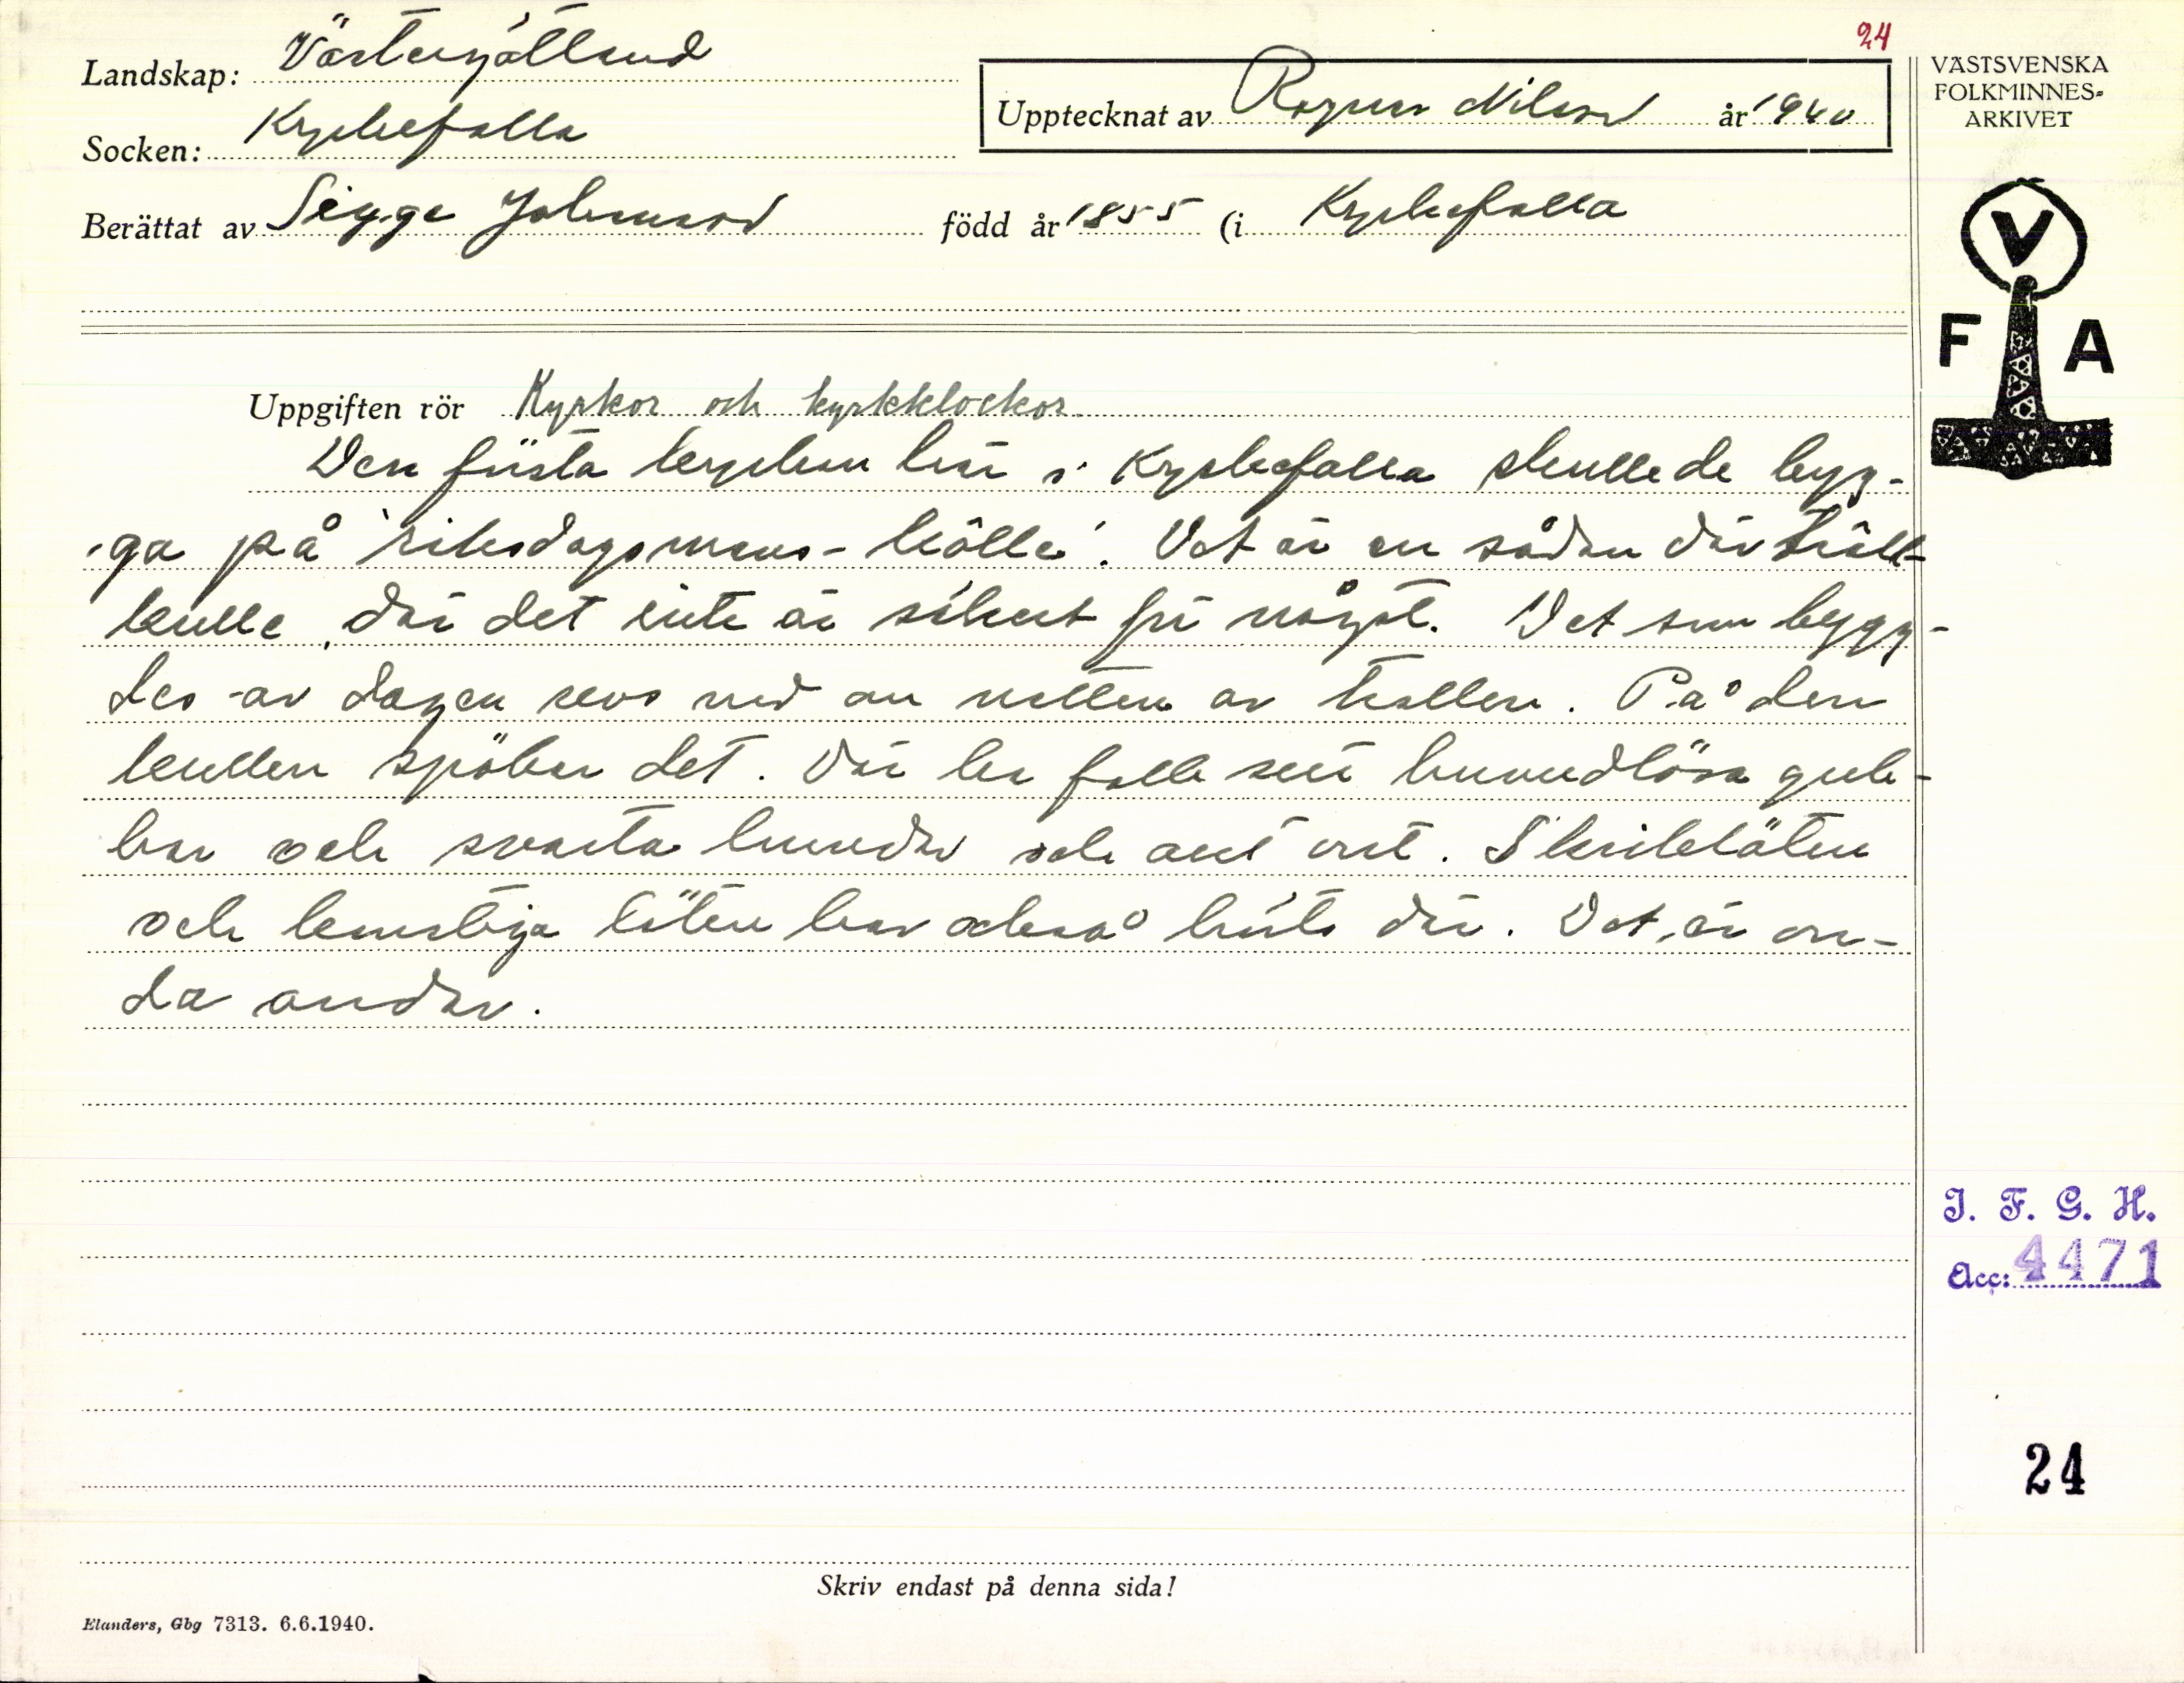 24
Landskap: Västergötland
Socken: Kyrkefalla
Upptecknat av Ragnar Nilsson år 1940
Berättat av Sigge Johansson född år 1855 (i Kyrkefalla
VÄSTSVENSKA
FOLKMINNES-
ARKIVET
V
F A
Uppgiften rör Kyrkor och kyrkklockor
Den första kyrkan här i Kyrkefalla skulle de byg-
ga på 'riksdagsmans-kölle'. Det är en sådan där troll-
kulle, där det inte är säkert för något. Det som bygg-
des av dagen revs ned om natten av trollen. På den
kullen spökar det. Där har folk sett huvudlösa gub-
bar och svarta hundar och allt ont. Skriklåten
och konstiga låten har också hörts där. Det är on-
da andar.
I. F. G. H.
Acc: 4471
24
Skriv endast på denna sida!
Elanders, Gbg 7313. 6.6.1940.